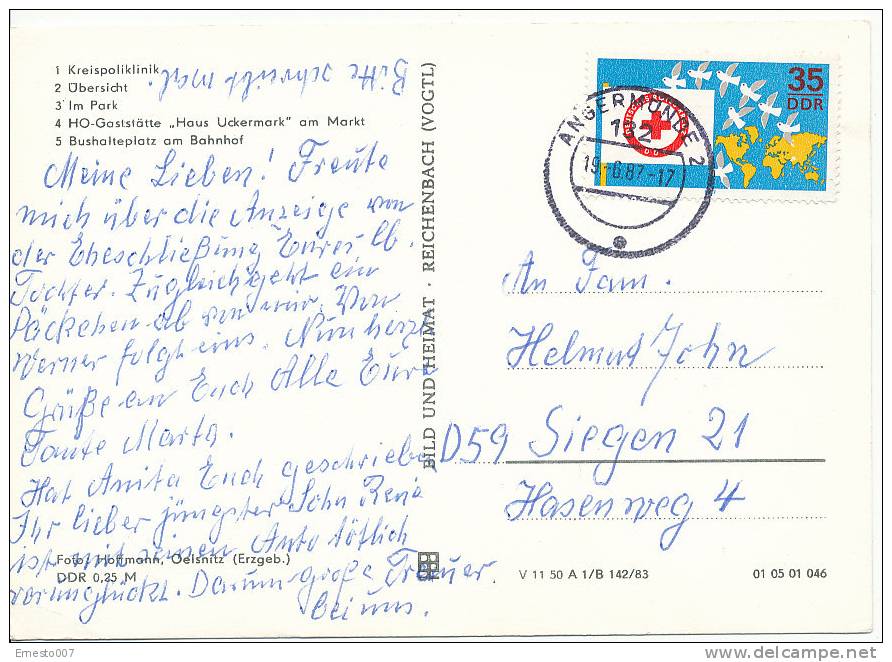 Bitte schreibt mal.
1 Kreispoliklinik
2 Übersicht
3 Im Park
4 HO-Gaststätte „Haus Uckermark" am Markt
5 Bushalteplatz am Bahnhof
Meine Lieben! Freute
mich über die Anzeige von
der Eheschließung Eurer lb.
Tochter. Zugleich geht ein
Päckchen ab von mir. Von
Werner folgt eins. Nun herzl
Grüße an Euch Alle Eure
Tante Marta.
Hat Anita Euch geschrieben
Ihr lieber jüngster Sohn René
ist mit seinen Auto tötlich
verunglückt. Darum große Trauer
bei uns.
Foto: Hoffmann, Oelsnitz (Erzgeb.)
DDR 0,25 M
BILD UND HEIMAT · REICHENBACH (VOGTL)
35
DDR
ANGERMÜNDE 2
132
19.-6.87-17
An Fam.
Helmut John
D59 Siegen 21
Hasenweg 4
V 11 50 A 1/B 142/83
01 05 01 046
Ernesto007
www.delcampe.net